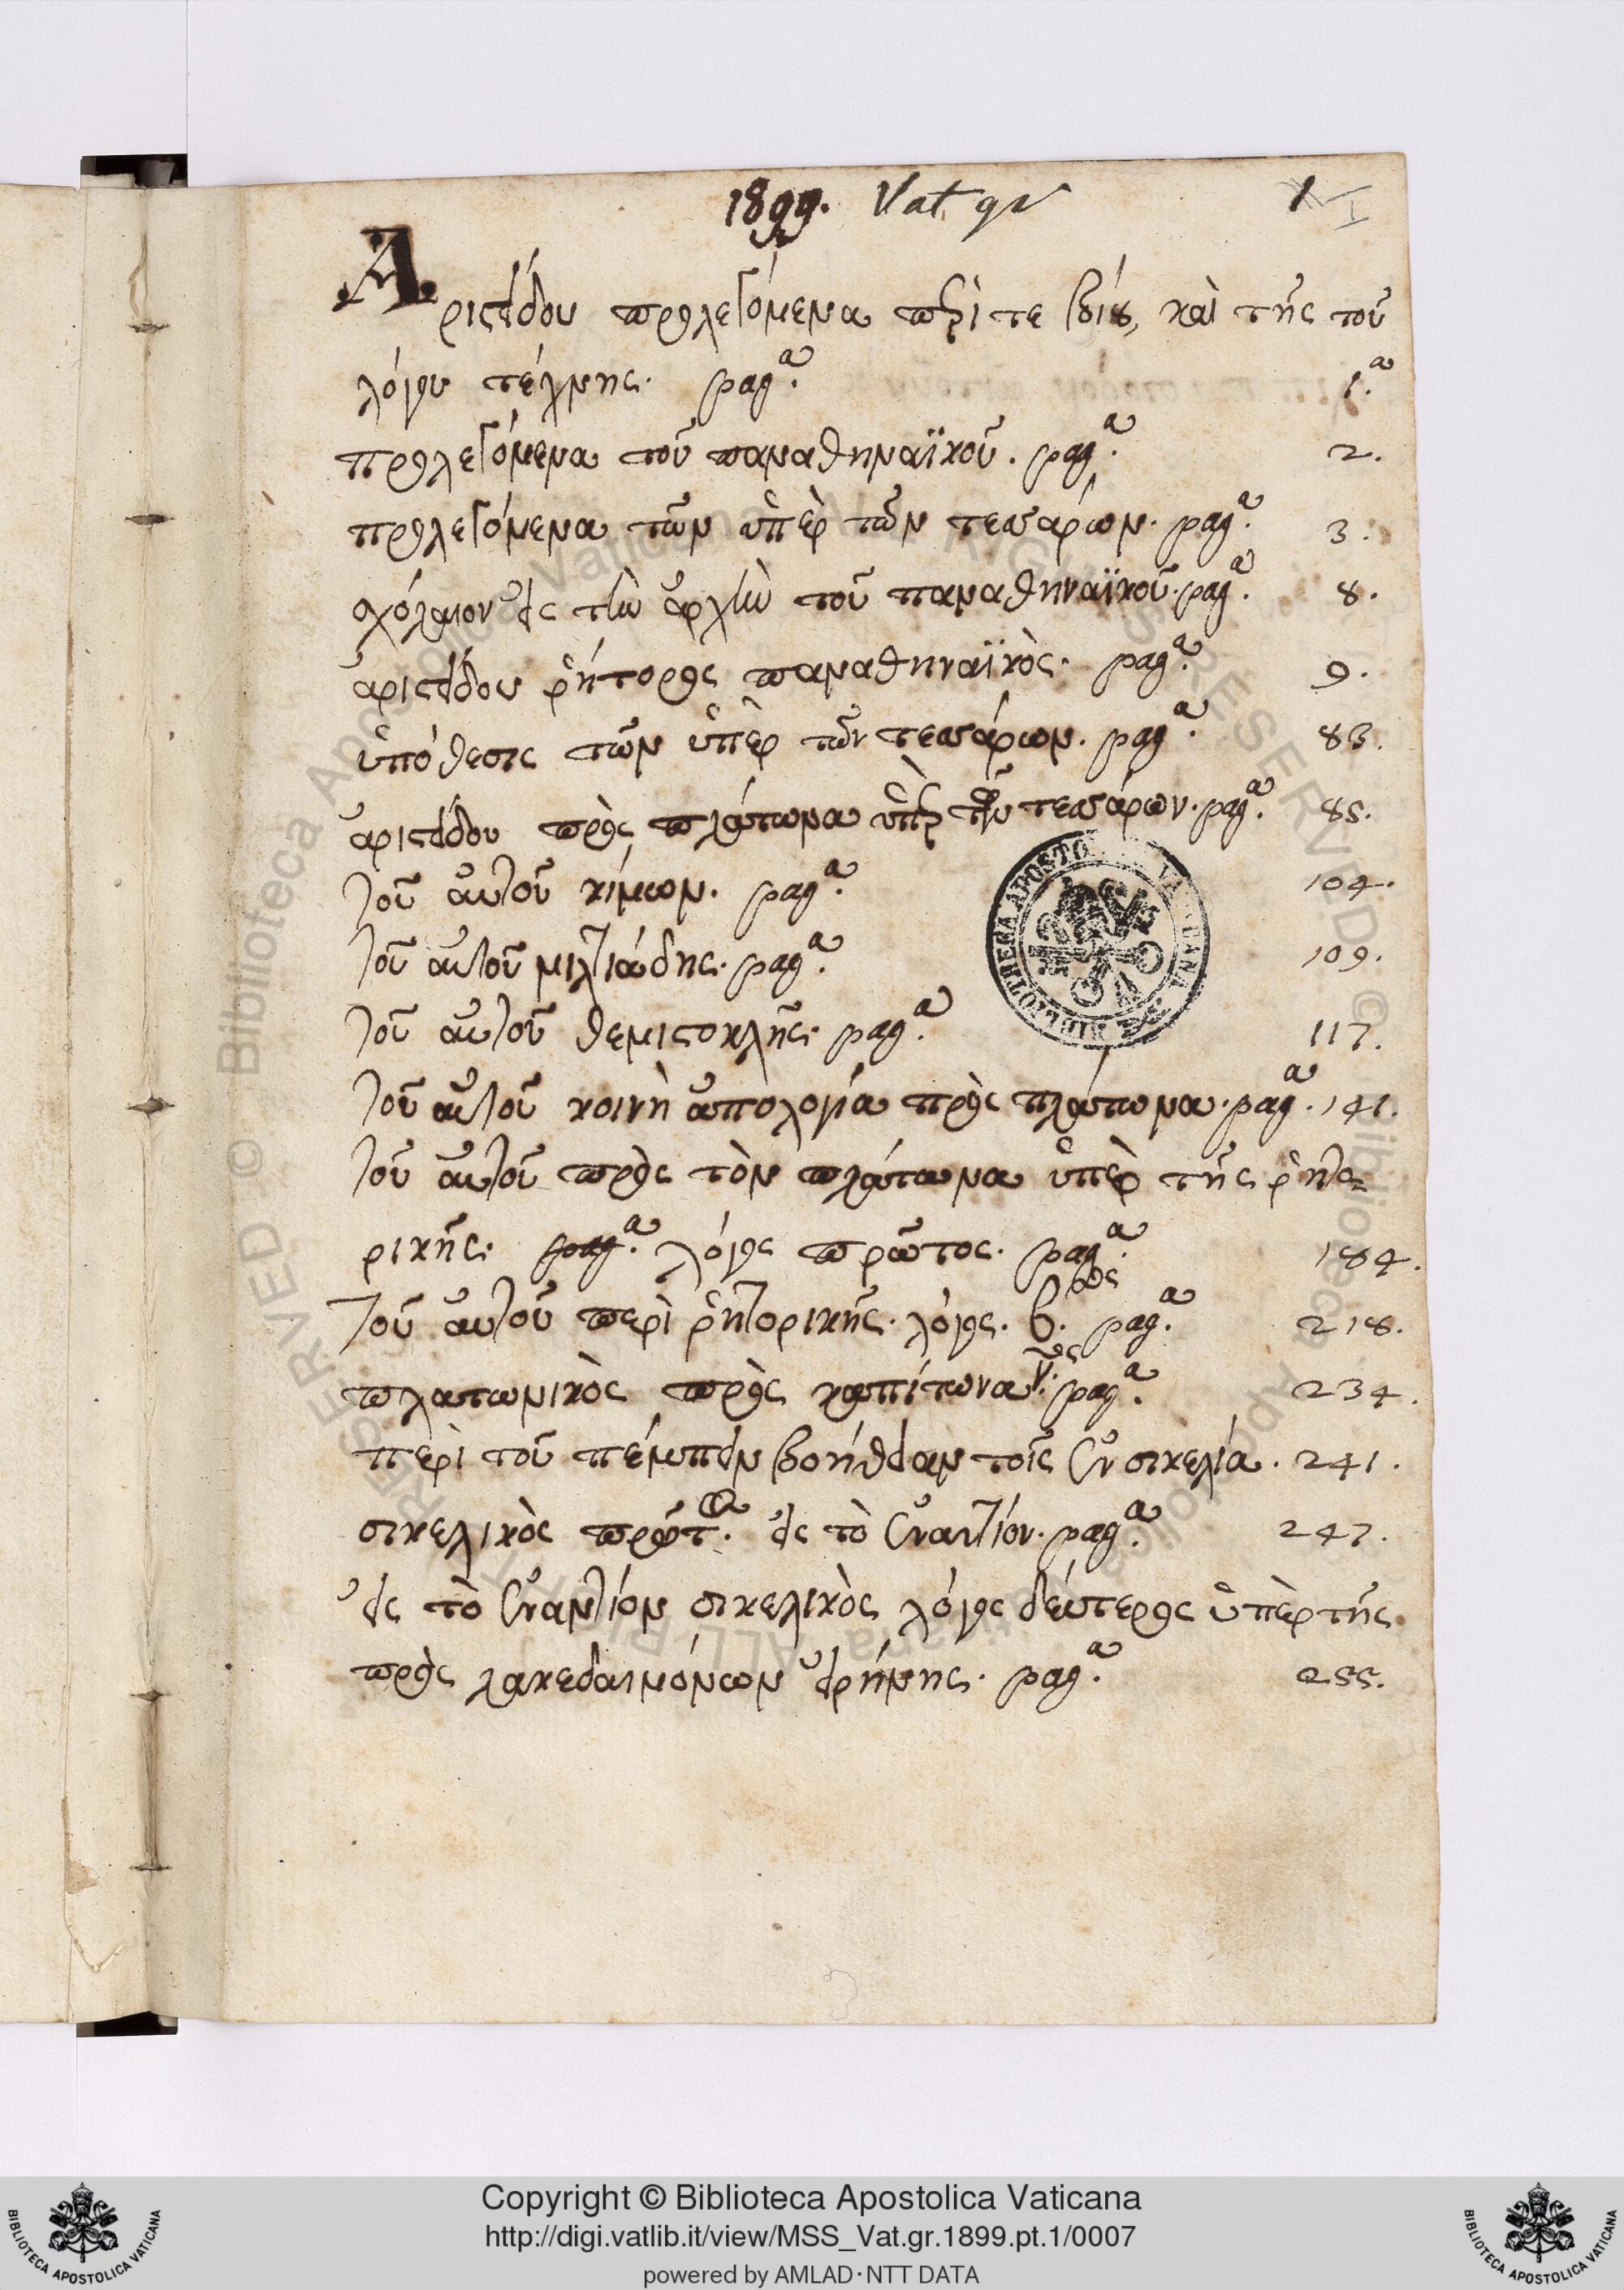 1899. Vat gr
1 I
Ἀριστείδου προλεγόμενα περί τε βίου, καὶ τῆς τοῦ
λόγου τέχνης. pagª. 1.ª
προλεγόμενα τοῦ παναθηναϊκοῦ. pagª. 2.
προλεγόμενα τῶν ὑπὲρ τῶν τεσσάρων. pagª. 3.
σχόλαιον εἰς τὴν ἀρχὴν τοῦ παναθηναϊκοῦ. pagª. 8.
ἀριστείδου ῥήτορος παναθηναϊκὸς. pagª. 9.
ὑπόθεσις τῶν ὑπὲρ τῶν τεσσάρων. pagª. 83.
ἀριστείδου πρὸς πλάτωνα ὑπὲρ τῶν τεσσάρων. pagª. 85.
τοῦ αὐτοῦ κίμων. pagª. 104.
τοῦ αὐτοῦ μιλτιάδης. pagª. 109.
τοῦ αὐτοῦ θεμιστοκλῆς. pagª. 117.
τοῦ αὐτοῦ κοινὴ ἀπολογία πρὸς πλάτωνα. pagª. 141.
τοῦ αὐτοῦ πρὸς τὸν πλάτωνα ὑπὲρ τῆς ῥητο=
ρικῆς. pagª. λόγος πρῶτος. pagª. 184.
τοῦ αὐτοῦ περὶ ῥητορικῆς. λόγος. β.ρος pagª. 218.
πλατωνικὸς πρὸς καπίτωνα γ.ος pagª. 234.
περὶ τοῦ πέμπειν βοήθειαν τοῖς ἐν σικελία. 241.
σικελικὸς πρώτ. εἰς τὸ ἐναντίον. pagª. 247.
εἰς τὸ ἐναντίον σικελικὸς λόγος δεύτερος ὑπὲρ τῆς
πρὸς λακεδαιμόνίων εἰρήνης. pagª. 255.
BIBLIOTHECA APOSTOLICA VATICANA
© Biblioteca Apostolica Vaticana ALL RIGHTS RESERVED © Biblioteca Apostolica Vaticana ALL RIGHTS RESERVED
Copyright © Biblioteca Apostolica Vaticana
http://digi.vatlib.it/view/MSS_Vat.gr.1899.pt.1/0007
powered by AMLAD·NTT DATA
BIBLIOTECA APOSTOLICA VATICANA
BIBLIOTECA APOSTOLICA VATICANA